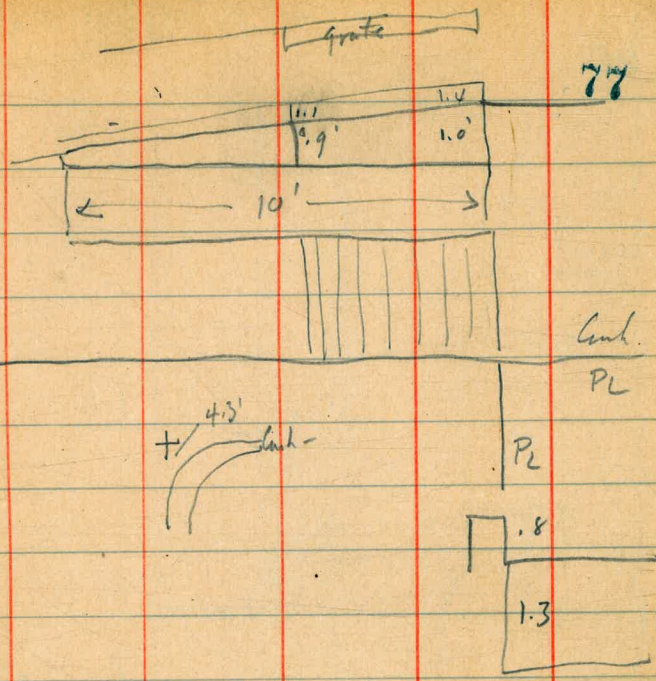 grate
77
1.1
1.4
.9'
1.0'
10'
Curb.
PL
4.3'
Curb
PL
.8
1.3